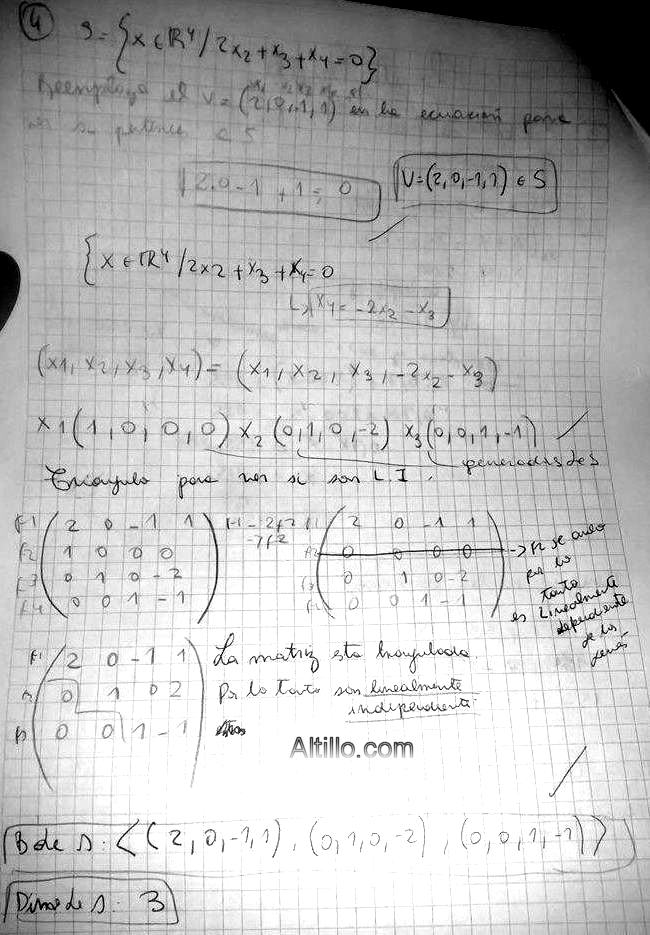 4
S = {x ∈ ℝ⁴ / 2x₂ + x₃ + x₄ = 0}
Reemplazo el V = (2,0,-1,1) en la ecuación para
ver si pertenece a S
2.0 - 1 + 1 = 0
V = (2,0,-1,1) ∈ S
{x ∈ ℝ⁴ / 2x2 + x₃ + x₄ = 0
x₄ = -2x₂ - x₃
(x1, x2, x3, x4) = (x1, x2, x3, -2x2 - x3)
x1(1,0,0,0) x2(0,1,0,-2) x3(0,0,1,-1)
generadores de S
Triángulo para ver si son L.I.
F1 2 0 -1 1
F2 1 0 0 0
F3 0 1 0 -2
F4 0 0 1 -1
F1 - 2f2
→ f2
2 0 -1 1
F2 0 0 0 0
0 1 0 -2
0 0 1 -1
→ F2 se anuló
por lo
tanto
es Linealmente
dependiente
de los
demás
F1 2 0 -1 1
F2 0 1 0 2
F3 0 0 1 -1
La matriz esta triangulada.
Por lo tanto son linealmente
independiente.
Altillo.com
B de S: <(2,0,-1,1), (0,1,0,-2), (0,0,1,-1)>
Dim de S: 3